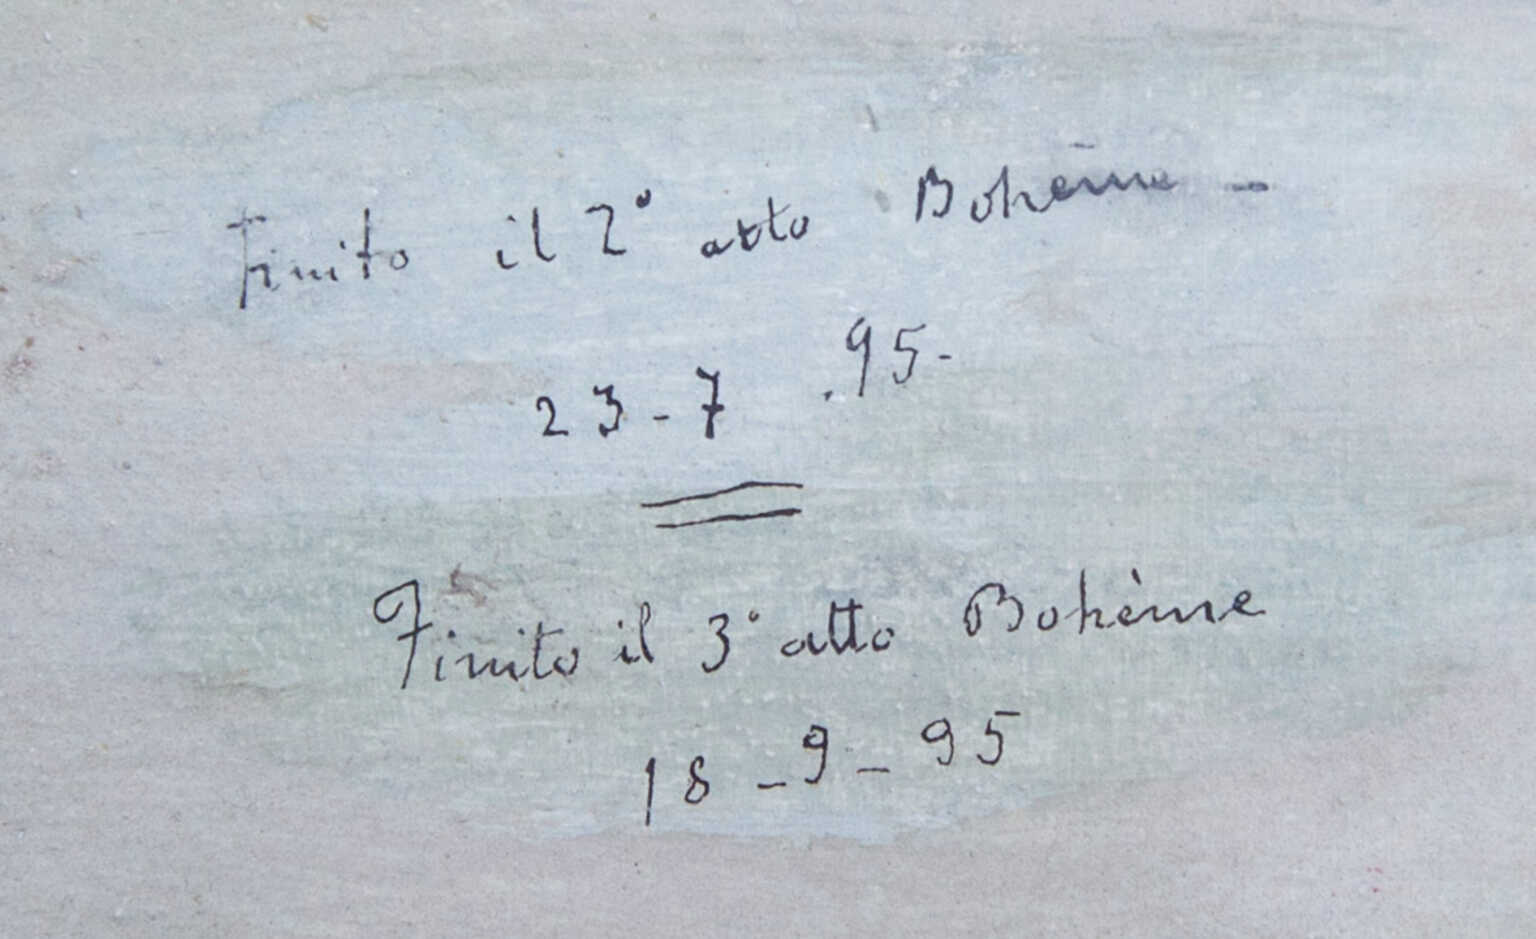 Finito il 2° atto Bohème -
23 - 7 . 95 -
Finito il 3° atto Bohème
18 - 9 - 95